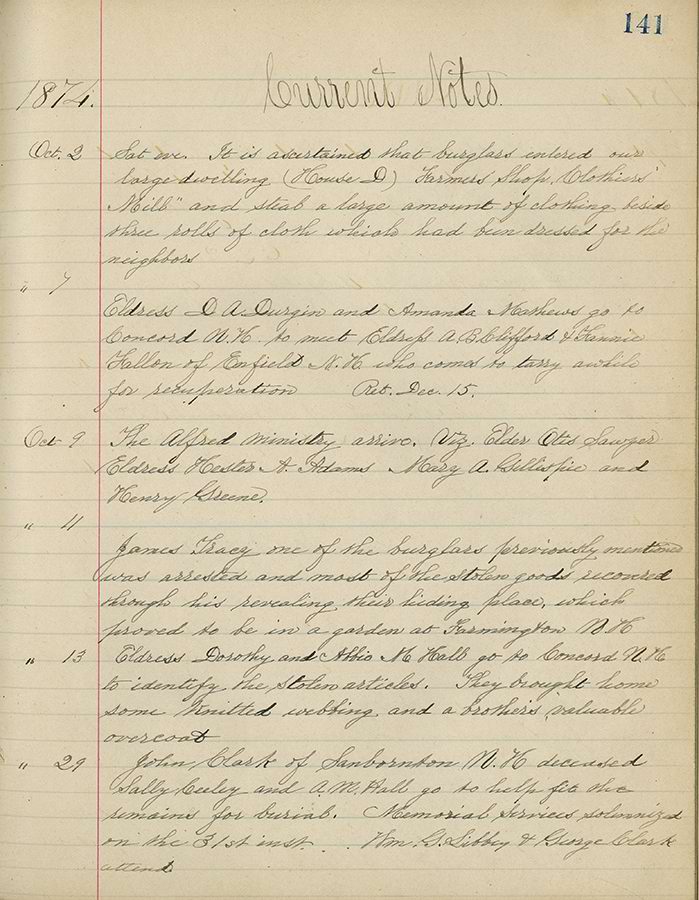 141
Current Notes.
1874.
Oct. 2 Sat eve. It is ascertained that burglars entered our
large dwelling (House D) Farmers' Shop, Clothiers'
Mill" and steal a large amount of clothing beside
three rolls of cloth which had been dressed for the
neighbors
" 7
Eldress D. A. Durgin and Amanda Mathews go to
Concord N. H. to meet Eldress A. B. Clifford & Fannie
Fallon of Enfield N. H. who comes to tarry awhile
for recuperation Ret. Dec. 15.
Oct 9 The Alfred ministry arrive. Viz. Elder Otis Sawyer
Eldress Hester A. Adams Mary A. Gillispie and
Henry Greene.
" 11
James Tracy one of the burglars previously mentioned
was arrested and most of the stolen goods recovered
through his revealing their hiding place, which
proved to be in a garden at Farmington N. H
" 13 Eldress Dorothy and Abbie M Hall go to Concord N. H
to identify the stolen articles. They brought home
some knitted webbing and a brother's valuable
overcoat
" 29 John Clark of Sanbornton N. H deceased
Sally Ceeley and A. M. Hall go to help fit the
remains for burial. Memorial services solemnized
on the 31st inst. Wm. G. Libbey & George Clark
attend